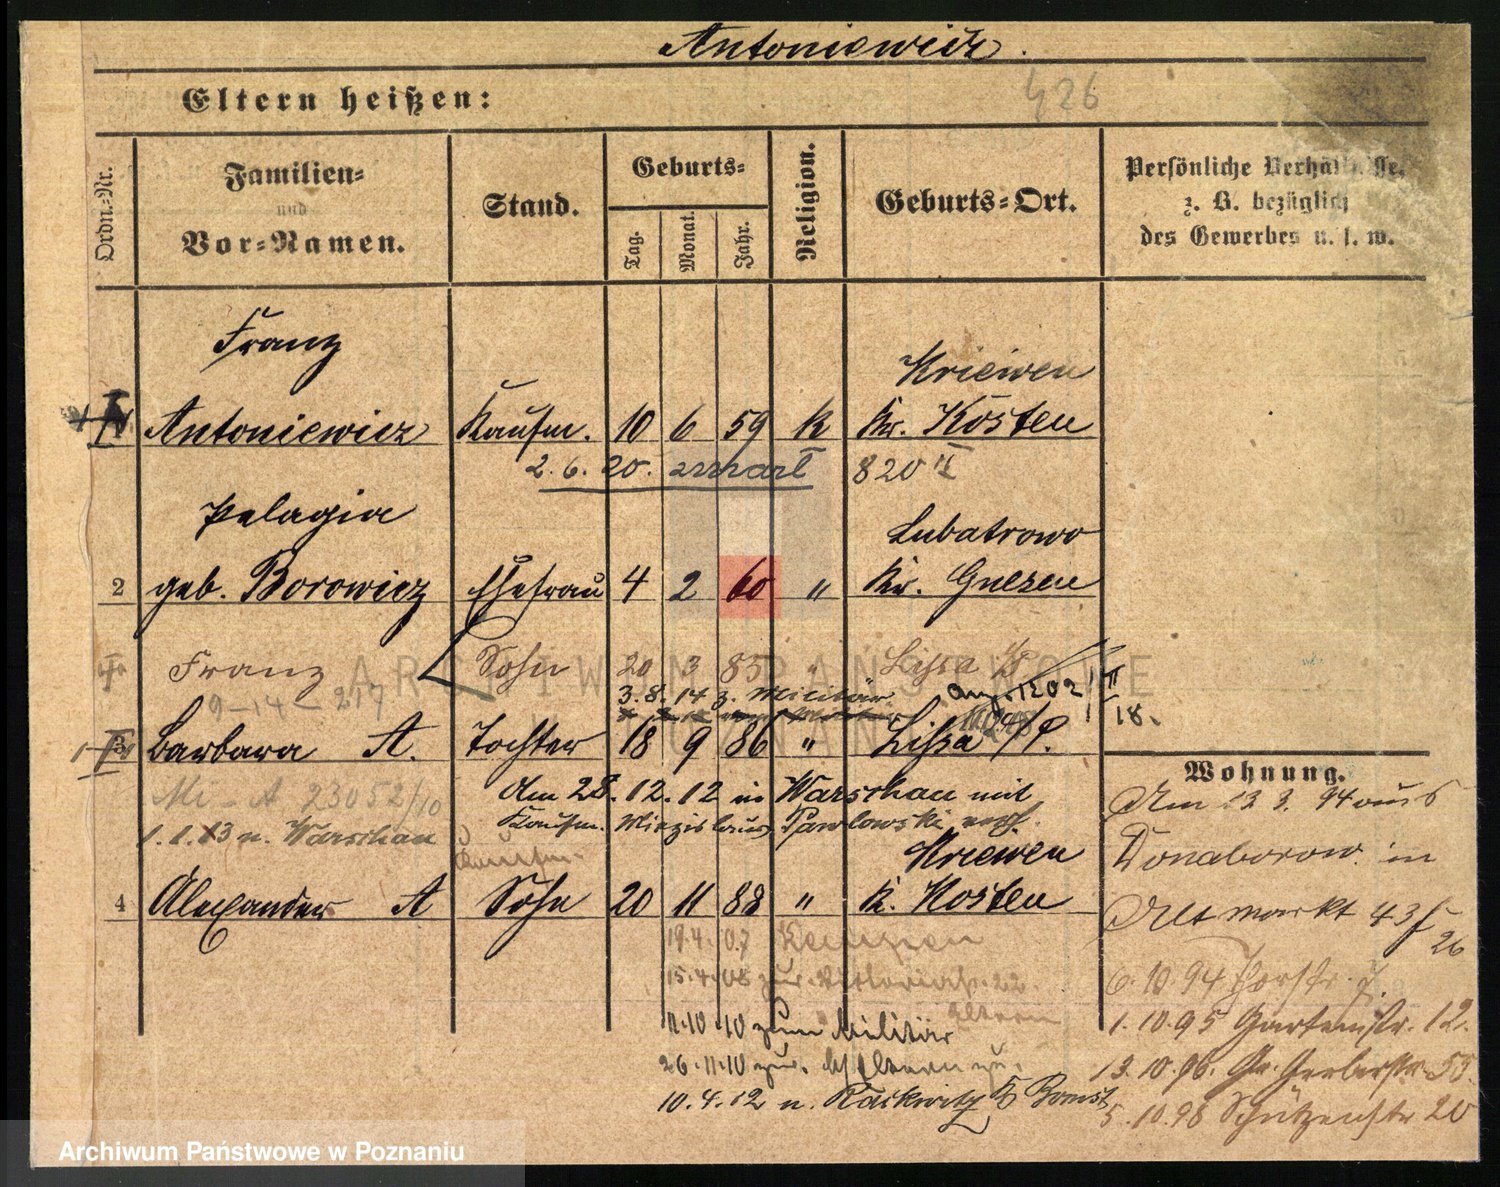 Antoniewicz.
426
Eltern heißen:
Ordn.-Nr.
Familien-
und
Vor-Namen.
Stand.
Geburts-
Tag.
Monat.
Jahr.
Religion.
Geburts-Ort.
Persönliche Verhältnisse,
z. B. bezüglich
des Gewerbes u. s. w.
Franz
Kriewen
Antoniewicz Kaufm. 10 6 59 k Kr. Kosten
2. 6. 20. 820 II
Pelagia Lubatrowo
2 geb. Borowicz Ehefrau 4 2 60 " Kr. Gnesen
Franz Sohn 20 3 85 " Lissa
9-14 217
3. 8. 14 z. Militär
3 Barbara A. Tochter 18 9 86 " Lissa i/P.
18.
Am 28. 12. 12 in Warschau mit
Kaufm. Pawlowski verh.
Mi-A 23052/10
1. 1. 13 n. Warschau
Kaufm.
Kriewen
4 Alexander A Sohn 20 11 88 " K. Kosten
19.4.07 Kempen
15.4.08 zur. Victoriastr. 22
Eltern
11.10.10 zum Militär
26.11.10 zur.
10.4.12 n. Rackwitz Bomst
Wohnung.
Am 13 3. 94 aus
Donaborow in
Alt markt 43
26
6.10.94
1.10.95 Gartenstr. 12.
13.10.96. Gr. Gerberstr. 55.
5.10.98 Schützenstr 20
ARCHIWUM PAŃSTWOWE
POZNAŃ
Archiwum Państwowe w Poznaniu